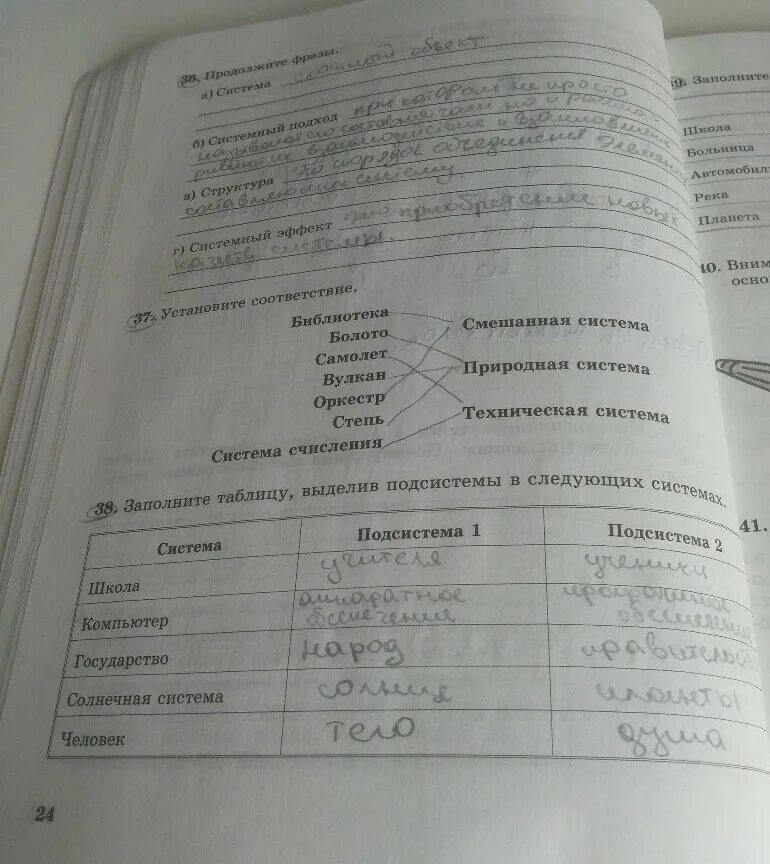 36. Продолжите фразы.
а) Система сложный объект
б) Системный подход при котором не просто
называют его составные части но и рассма-
ривают их взаимодействие и взаимовлияние
в) Структура это порядок объединения элемен
составляющих систему.
г) Системный эффект это приобретение новых
качеств системы.
37. Установите соответствие.
Библиотека
Болото
Самолет
Вулкан
Оркестр
Степь
Система счисления
Смешанная система
Природная система
Техническая система
38. Заполните таблицу, выделив подсистемы в следующих системах.
Система Подсистема 1 Подсистема 2
Школа учителя ученики
Компьютер аппаратное обеспечение программное обеспечение
Государство народ правительство
Солнечная система солнце планеты
Человек тело душа
24
39. Заполните
Школа
Больница
Автомобил
Река
Планета
40. Вним
осно
41.